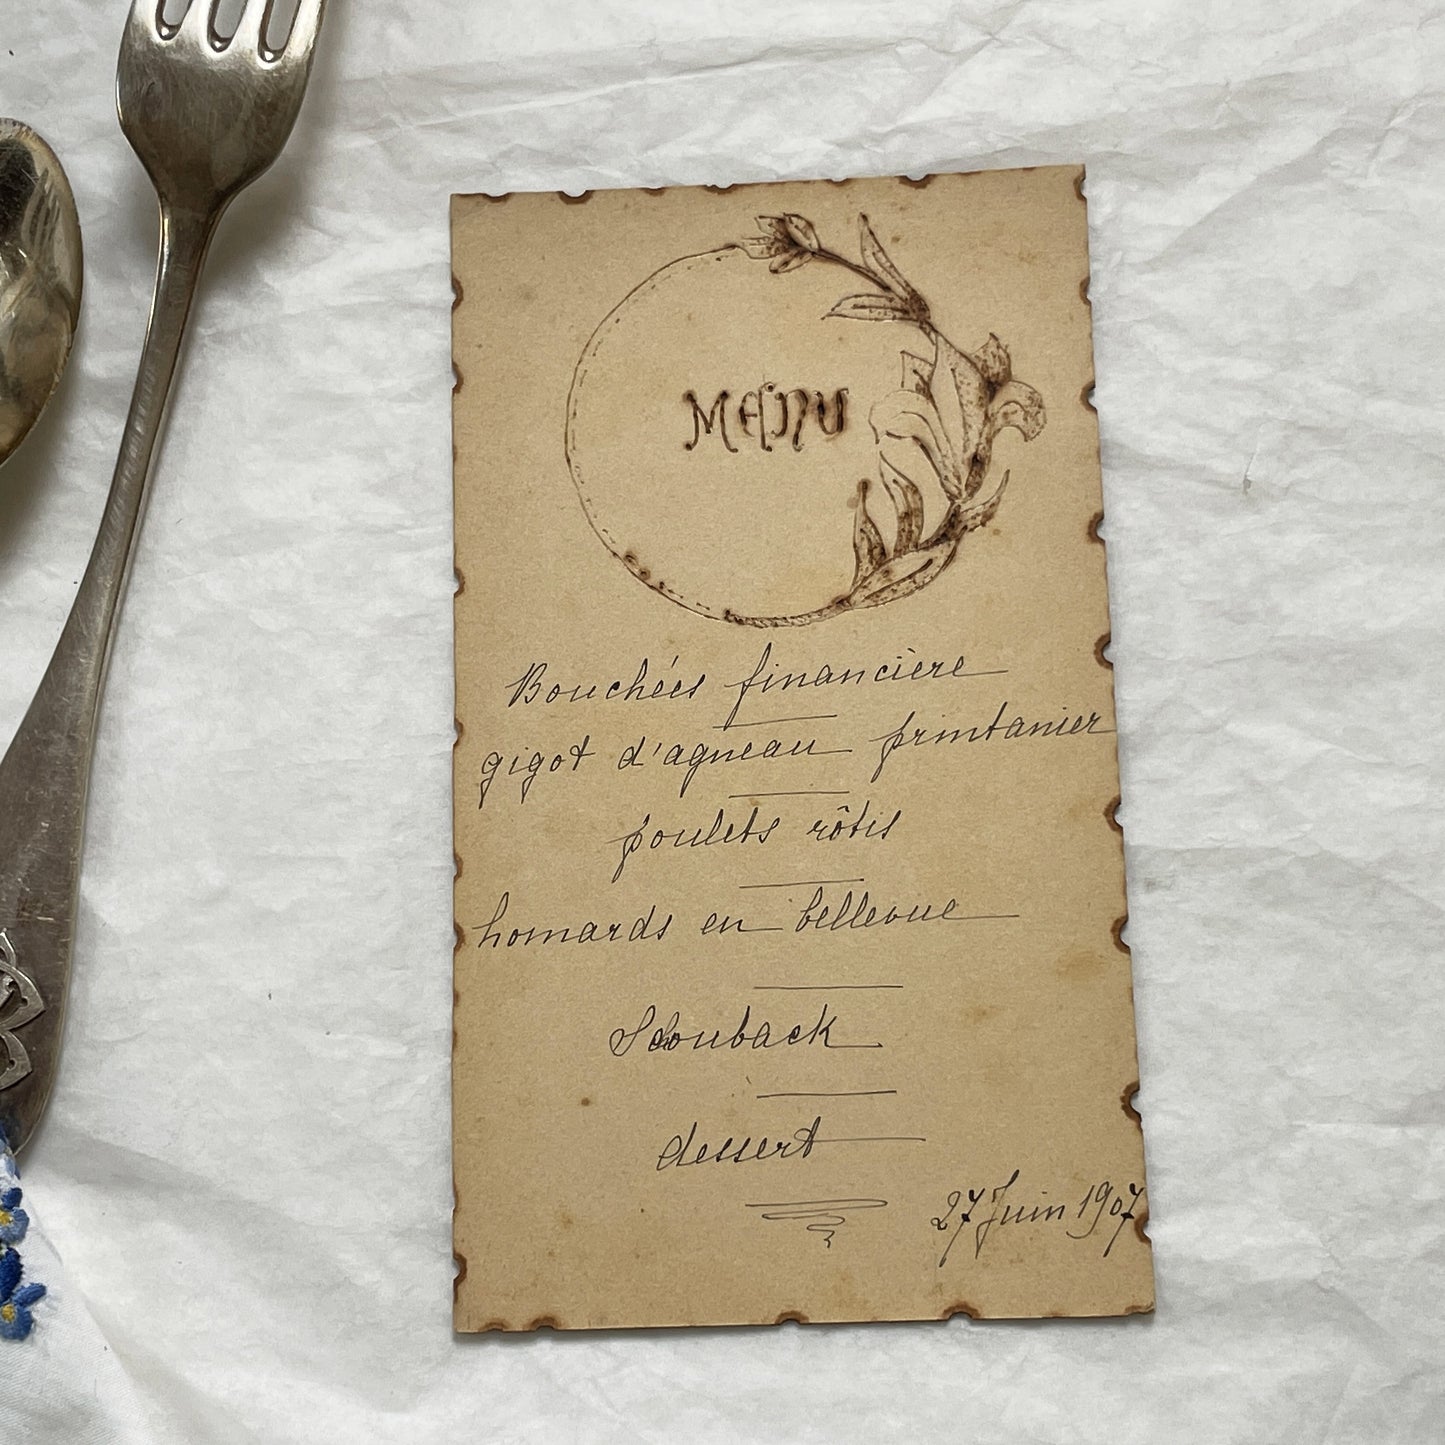 MENU
Bouchées financière
gigot d'agneau printanier
poulets rôtis
homards en bellevue
dessert
27 Juin 1907